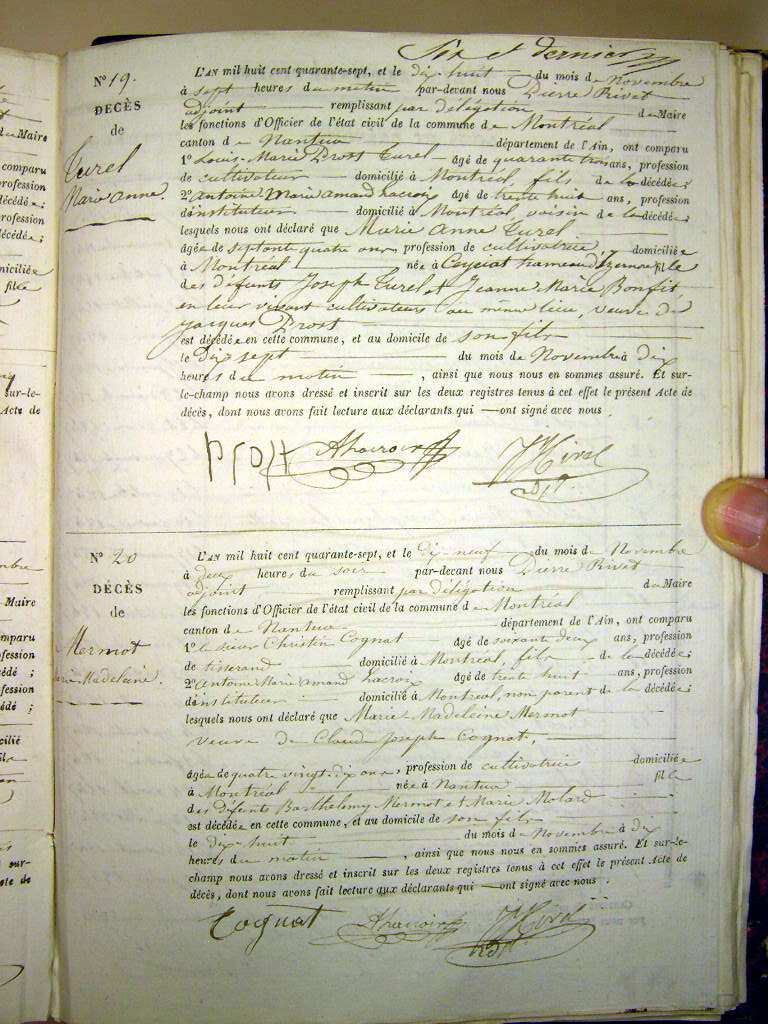 Six et dernier
N° 19.
DÉCÈS
de
Turel
Marie anne.
L'AN mil huit cent quarante-sept, et le dix huit du mois de Novembre
à sept heures du matin par-devant nous Pierre Rivet
adjoint remplissant par délégation de Maire
les fonctions d'Officier de l'état civil de la commune de Montréal
canton de Nantua département de l'Ain, ont comparu
1° Louis-Marie Prost Turel âgé de quarante trois ans, profession
de cultivateur domicilié à Montréal, fils de la décédée;
2° Antoine-Marie amand Lacroix âgé de trente huit ans, profession
d'instituteur domicilié à Montréal, voisin de la décédée;
lesquels nous ont déclaré que Marie Anne Turel
âgée de septante quatre ans, profession de cultivatrice, domiciliée
à Montréal née à Ceyciat hameau d' fille
des défunts Joseph Turel et Jeanne Marie Bonfit
en leur vivant cultivateurs au même lieu, veuve de
Jacques Prost
est décédée en cette commune, et au domicile de son fils
le dix sept du mois de Novembre à dix
heures du matin, ainsi que nous nous en sommes assuré. Et sur-
le-champ nous avons dressé et inscrit sur les deux registres tenus à cet effet le présent Acte de
décès, dont nous avons fait lecture aux déclarants qui ont signé avec nous
Prost ALacroix
N° 20
DÉCÈS
de
Mermot
Madeleine.
L'AN mil huit cent quarante-sept, et le dix neuf du mois de Novembre
à deux heures du soir par-devant nous Pierre Rivet
adjoint remplissant par délégation de Maire
les fonctions d'Officier de l'état civil de la commune de Montréal
canton de Nantua département de l'Ain, ont comparu
1° le sieur Christin Cognat âgé de soixante deux ans, profession
de tisserand domicilié à Montréal, fils de la décédée;
2° Antoine Marie amand Lacroix âgé de trente huit ans, profession
d'instituteur domicilié à Montréal, non parent de la décédée;
lesquels nous ont déclaré que Marie Madeleine Mermot
veuve de Claude Joseph Cognat,
âgée de quatre vingt dix ans, profession de cultivatrice domiciliée
à Montréal née à Nantua fille
des défunts Barthelemy Mermot et Marie Molard
est décédée en cette commune, et au domicile de son fils
le dix-huit du mois de Novembre à dix
heures du matin, ainsi que nous nous en sommes assuré. Et sur-le-
champ nous avons dressé et inscrit sur les deux registres tenus à cet effet le présent Acte de
décès, dont nous avons fait lecture aux déclarants qui ont signé avec nous
Cognat ALacroix